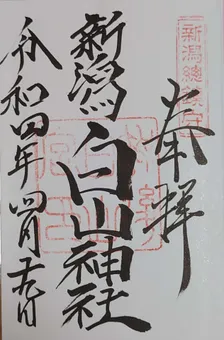 新潟總鎮守
奉拝
新潟白山神社
令和四年四月九日